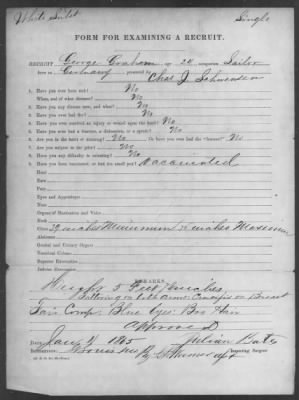 Single
FORM FOR EXAMINING A RECRUIT.
RECRUIT George Graham age 24 occupation Sailor
born in Germany presented by Chas J
1. Have you ever been sick? No
When, and of what disease? No
2. Have you any disease now, and what? No
3. Have you ever had fits? No
4. Have you ever received an injury or wound upon the head? No
5. Have you ever had a fracture, a dislocation, or a sprain? No
6. Are you in the habit of drinking? No Or have you ever had the "horrors?" No
7. Are you subject to the piles? No
8. Have you any difficulty in urinating? No
9. Have you been vaccinated, or had the small pox? Vaccinated
Head
Ears
Face
Eyes and Appendages
Nose
Organs of Mastication and Voice
Neck
Chest inches Minimum 35 inches Maximum
Abdomen
Genital and Urinary Organs
Vertebral Column
Superior Extremities
Inferior Extremities
REMARKS.
Height 5 Feet inches
on both arms on Breast
Fair Comp; Blue Eyes; Hair
Approved
Date Jany 1865 Julian Bates
Rendezvous, Inspecting Surgeon